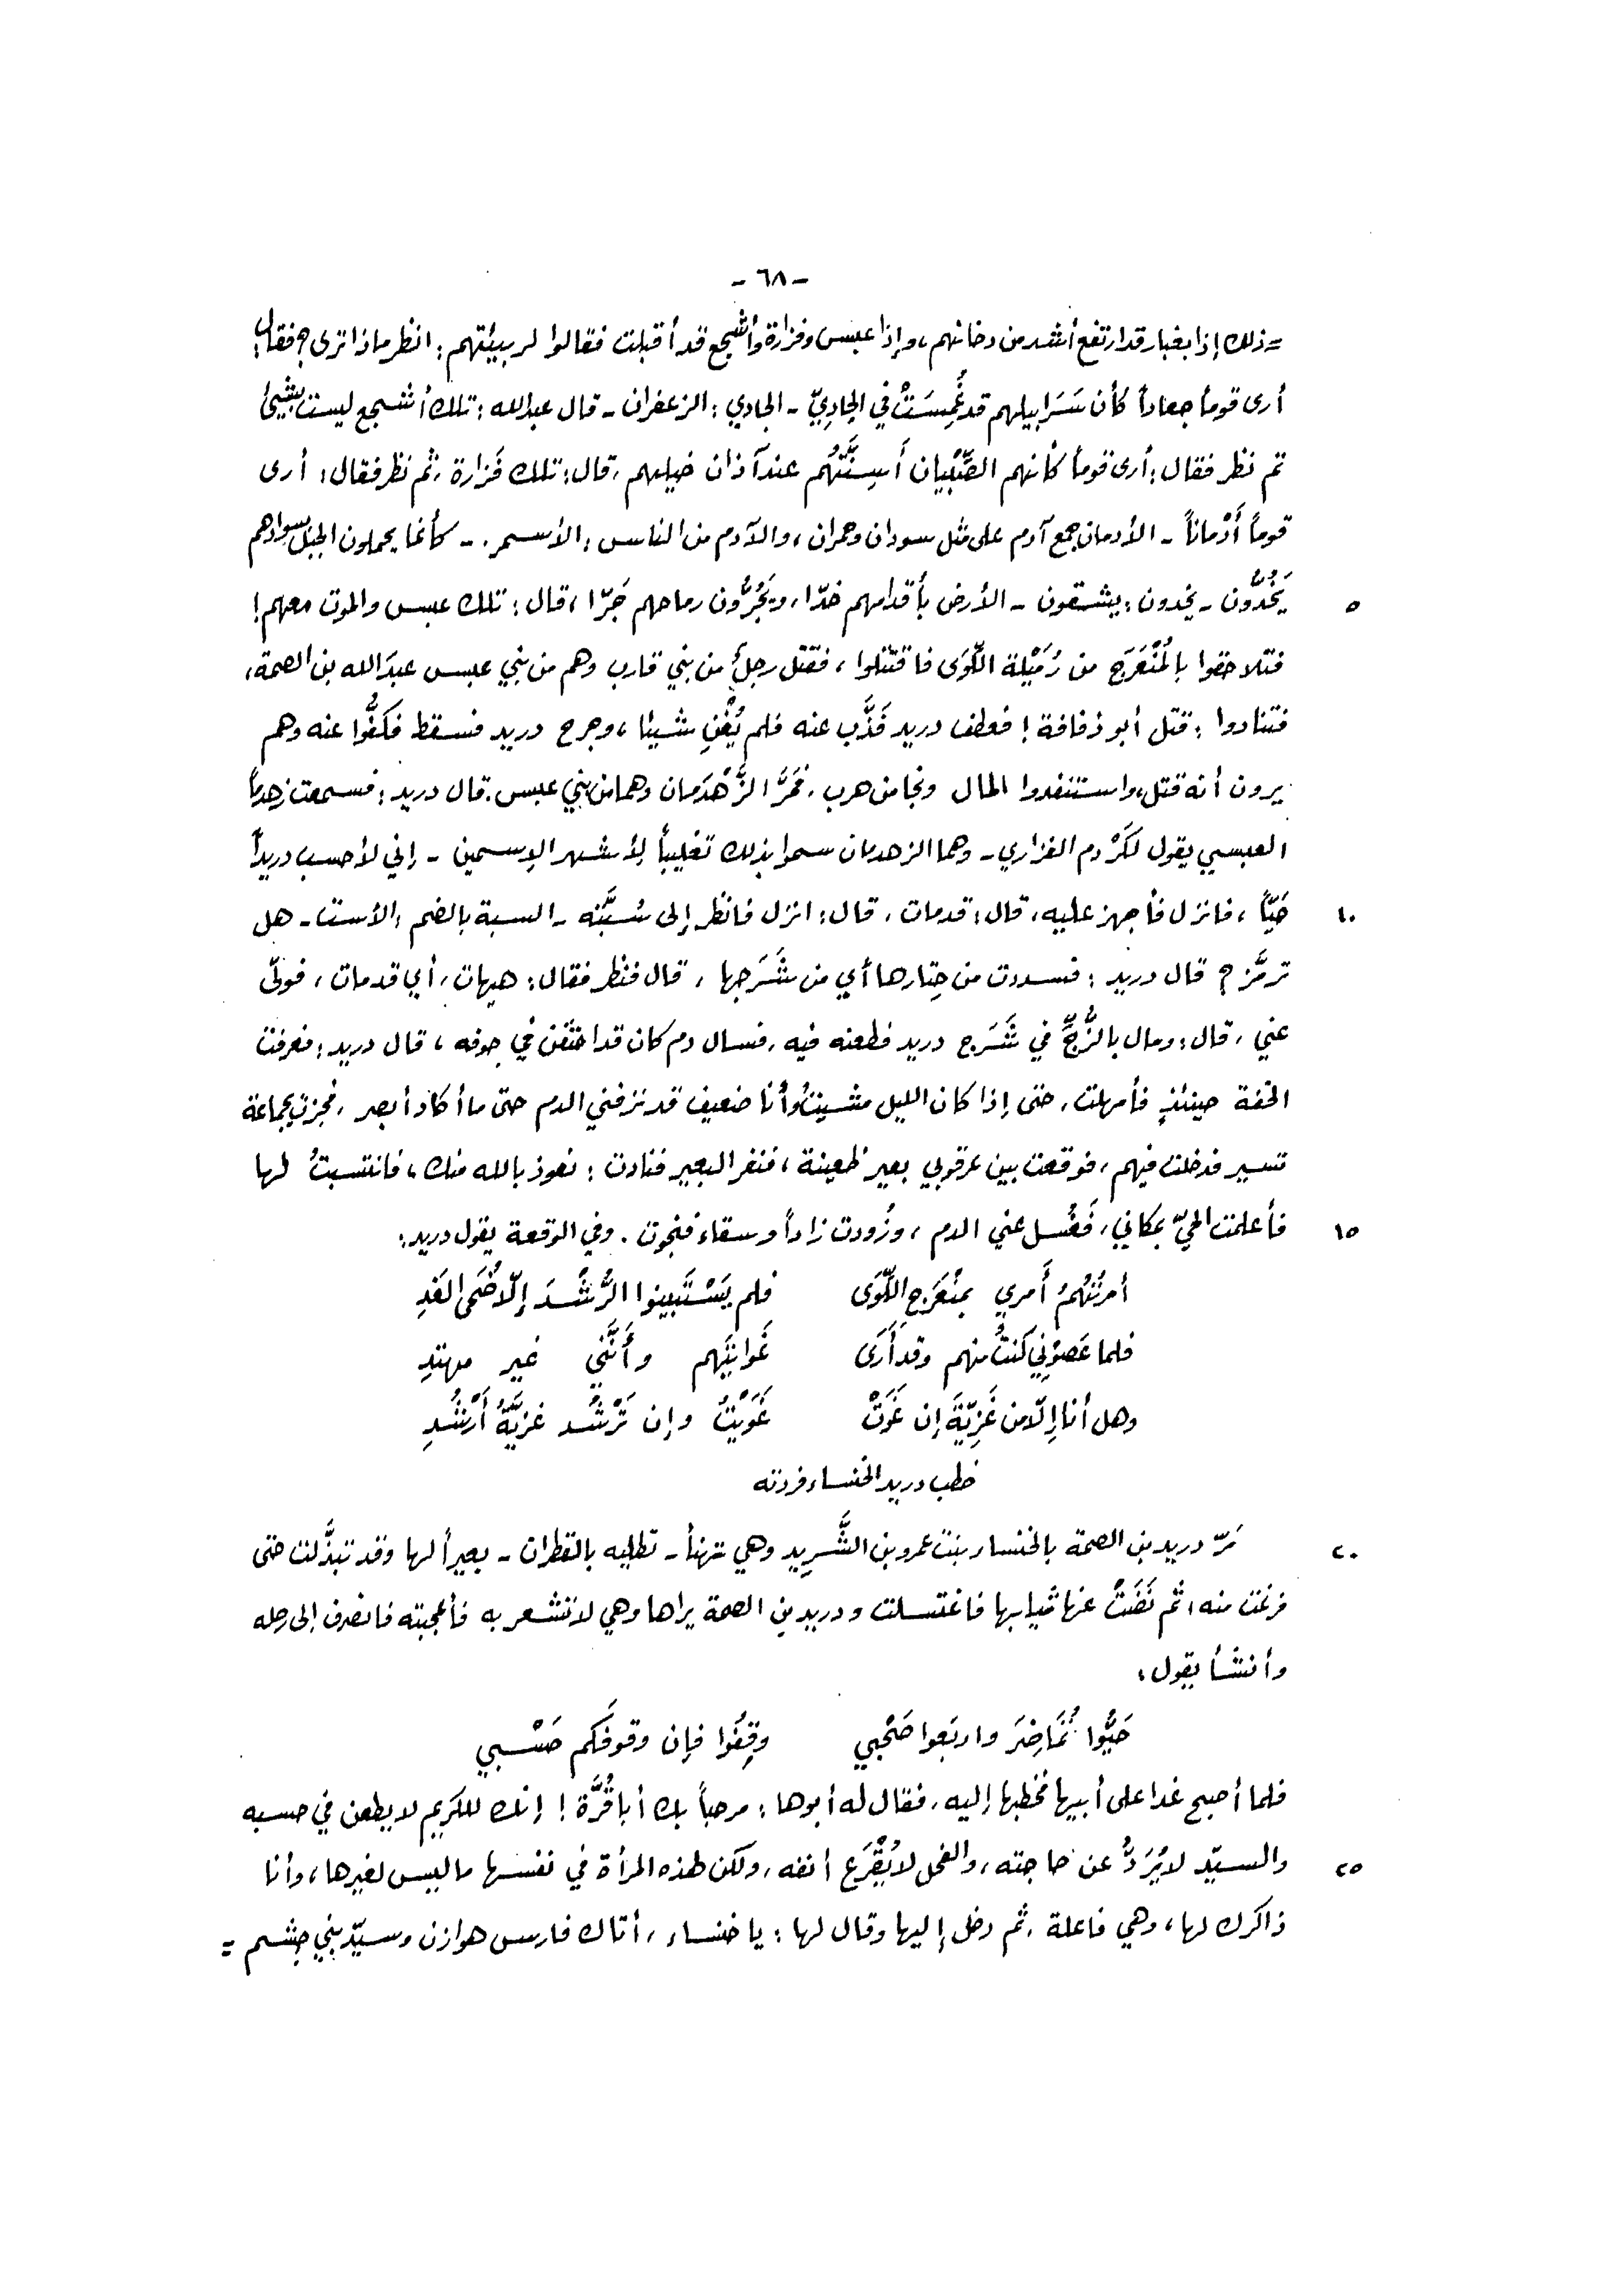 - ٦٨ -
= ذلك إذا بغبار قد ارتفع أشد من دخانهم، وإذا عبس وفزارة وأشجع قد أقبلت فقالوا لربيئتهم: انظر ماذا ترى؟ فقال:
أرى قوماً جعاداً كأن سَرَابيلهم قد غُمِسَتْ في الجَادِيّ - الجادي: الزعفران - قال عبدالله: تلك أشجع ليست بشيئ
ثم نظر فقال: أرى قوماً كأنهم الصِّبْيان أَسِنَّتُهُم عند آذان خيلهم، قال: تلك فَزارة، ثم نظر فقال: أرى
قوماً أَدْماناً - الأدمان جمع آدم على مثل سودان وحمران، والآدم من الناس: الأسمر. - كأنما يحملون الجبل بسوادهم
٥ يَخُدُّون - يخدون: يشقون - الأرض بأقدامهم خدّا، ويَجُرُّون رماحهم جَرّا، قال: تلك عبس والموت معهم!
فتلاحقوا بالمُنْعَرَج من رُمَيْلة اللِّوَى فاقتتلوا، فقتل رجلٌ من بني قارب وهم من بني عبس عبدَالله بن الصمة،
فتنادوا: قتل أبو ذفافة! فعطف دريد فَذَّب عنه فلم يُغْنِ شيئا، وجرح دريد فسقط فكَفُّوا عنه وهم
يرون أنه قتل، واستنقذوا المال ونجا من هرب. فَمَرَّ الزَّهْدَمان وهما من بني عبس. قال دريد: فسمعت زهدماً
العبسي يقول لكَرْدم الفزاري - وهما الزهدمان سموا بذلك تغليباً لأشهر الإسمين - إني لأحسب دريداً
١٠ حَيّاً، فانزل فأجهز عليه، قال: قد مات، قال: انزل فانظر إلى سُبَّته - السبة بالضم: الأست - هل
ترمَّز؟ قال دريد: فسددت من حِتارها أي من شَرَجها، قال فنظر فقال: هيهات، أي قد مات، فولّى
عني، قال: ومال بالزُّجِّ في شَرَج دريد فطعنه فيه، فسال دم كان قد احتقن في جوفه، قال دريد: فعرفت
الخفة حينئذٍ فأمهلت، حتى إذا كان الليل مشيتُ وأنا ضعيف قد نزفني الدم حتى ما أكاد أبصر، فجزت بجماعة
تسير فدخلت فيهم، فوقعت بين عرقوبي بعير ظعينة، فنفر البعير فنادت: نعوذ بالله منك، فانتسبتُ لها
١٥ فأعلمت الحيّ بمكاني، فَغُسل عني الدم، وزُودت زاداً وسقاء فنجوت. وفي الوقعة يقول دريد:
أمرتُهُمُ أَمري بمنْعَرَجِ اللِّوَى فلم يَسْتَبينوا الرُّشْدَ إلّا ضُحَى الغَدِ
فلما عَصوْنِي كنتُ منهم وقد أَرَى غَوايَتَهم وأَنَّني غير مهتدِ
وهل أنا إلّا من غَزِيَّةَ إن غَوَتْ غَوَيْتُ وإن تَرْشُد غزيَّةُ أَرْشُدِ
خطب دريد الخنساء فردته
٢٠ مَرّ دريد بن الصمة بالخنساء بنت عمرو بن الشَّرِيد وهي تهنأ - تطليه بالقطران - بعيراً لها وقد تبذَّلت حتى
فرغت منه، ثم نَضَتْ عنها ثيابها فاغتسلت ودريد بن الصمة يراها وهي لا تشعر به فأعجبته فانصرف إلى رحله
وأنشأ يقول:
حَيُّوا تُمَاضِرَ واربَعوا صَحْبي وقِفُوا فإن وقوفَكم حَسْبي
فلما أصبح غدا على أبيها فخطبها إليه، فقال له أبوها: مرحباً بك أبا قُرَّة! إنك للكريم لا يطعن في حسبه
٢٥ والسيّد لا يُرَدُّ عن حاجته، والفحل لا يُقْرَع أنفه، ولكن لهذه المرأة في نفسها ما ليس لغيرها، وأنا
ذاكرك لها، وهي فاعلة، ثم دخل إليها وقال لها: يا خنساء، أتاك فارس هوازن وسيّد بني جشم =